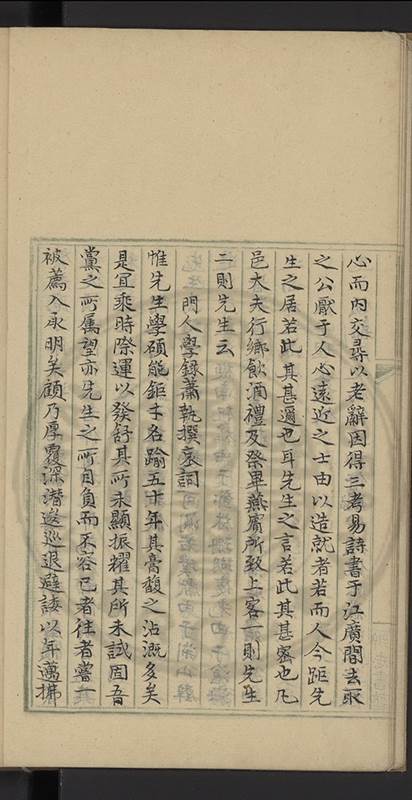 心而内交尋以老辭因得三考易詩書于江廣間去取
之公厭于人心遠近之士由以造就者若而人今距先
生之居若此其甚邇也耳先生之言若此其甚密也凡
邑大夫行鄉飲酒禮及祭畢燕賓所致上客一則先生
二則先生云
門人學錄蕭執撰哀詞
惟先生學碩能鉅才名踰五十年其膏馥之沾溉多矣
是宜乘時際運以發舒其所未顯振耀其所未試固吾
黨之所属望亦先生之所自負而不容已者往者嘗一
被薦入承明矣顧乃厚覆深潜逡巡退避諉以年邁拂